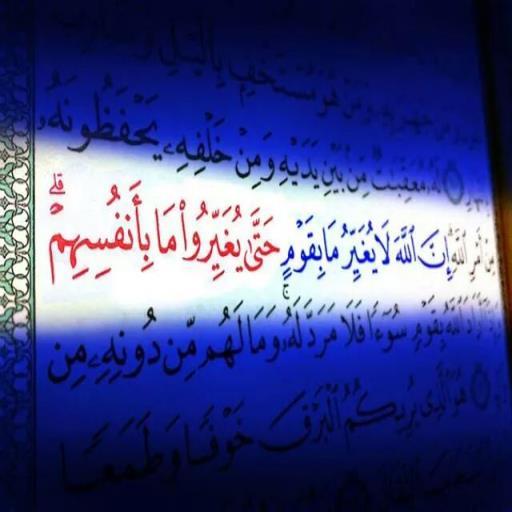 وَمَنْ هُوَ مُسْتَخْفٍۭ بِٱلَّيْلِ
لَهُۥ مُعَقِّبَٰتٌ مِّنۢ بَيْنِ يَدَيْهِ وَمِنْ خَلْفِهِۦ يَحْفَظُونَهُۥ
مِنْ أَمْرِ ٱللَّهِ إِنَّ ٱللَّهَ لَا يُغَيِّرُ مَا بِقَوْمٍ حَتَّىٰ يُغَيِّرُوا۟ مَا بِأَنفُسِهِمْ ۗ
أَرَادَ ٱللَّهُ بِقَوْمٍ سُوٓءًا فَلَا مَرَدَّ لَهُۥ وَمَا لَهُم مِّن دُونِهِۦ مِن
هُوَ ٱلَّذِى يُرِيكُمُ ٱلْبَرْقَ خَوْفًا وَطَمَعًا